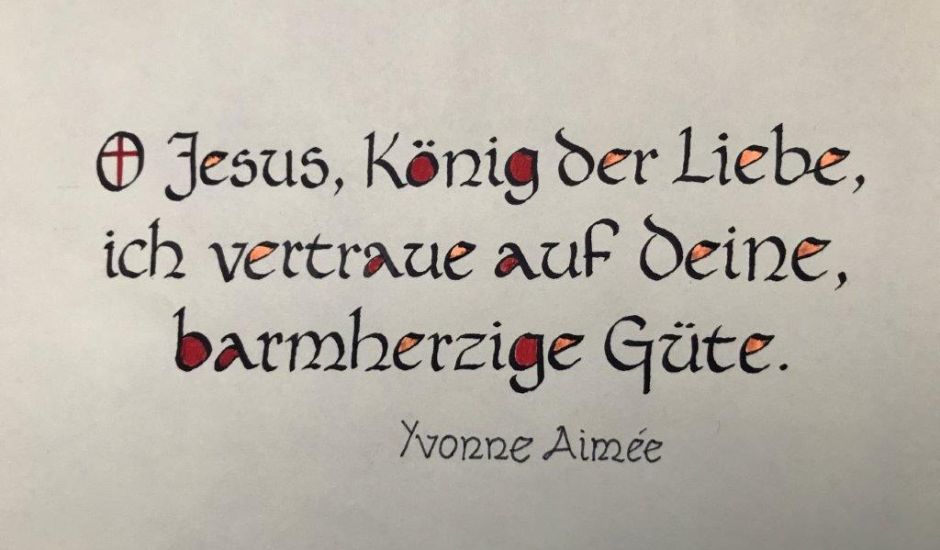 O Jesus, König der Liebe,
ich vertraue auf deine,
barmherzige Güte.
Yvonne Aimée